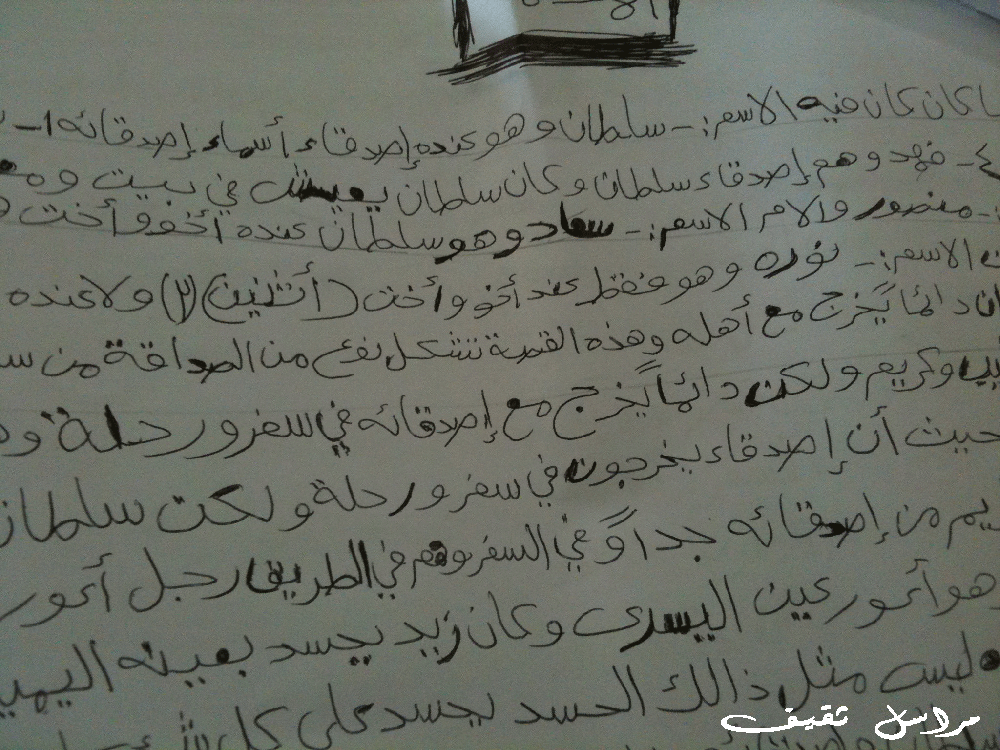 ما كان كان فيه الاسم :- سلطان وهو عنده إصدقاء أسماء إصدقائه ١-
٤- فهد وهم إصدقاء سلطان وكان سلطان يعيش في بيت
:- منصور والام الاسم :- سعاد وهو سلطان عنده أخو وأخت
الاسم :- نوره وهو فقط عند أخو وأخت (أثنين) (٢) ولا عنده
دائماً يخرج مع أهله وهذه القصة تتشكل نوع من الصداقة من
وكريم ولكن دائماً يخرج مع إصدقائه في سفر ورحلة
حيث أن إصدقاء يخرجون في سفر ورحلة ولكن سلطان
من إصدقائه جداً وفي السفر وهم في الطريق رجل أعور
وهو أعور عين اليسرى وكان زيد يحسد بعينه
ليس مثل ذالك الحسد يحسد على كل
مراسل ثقيف